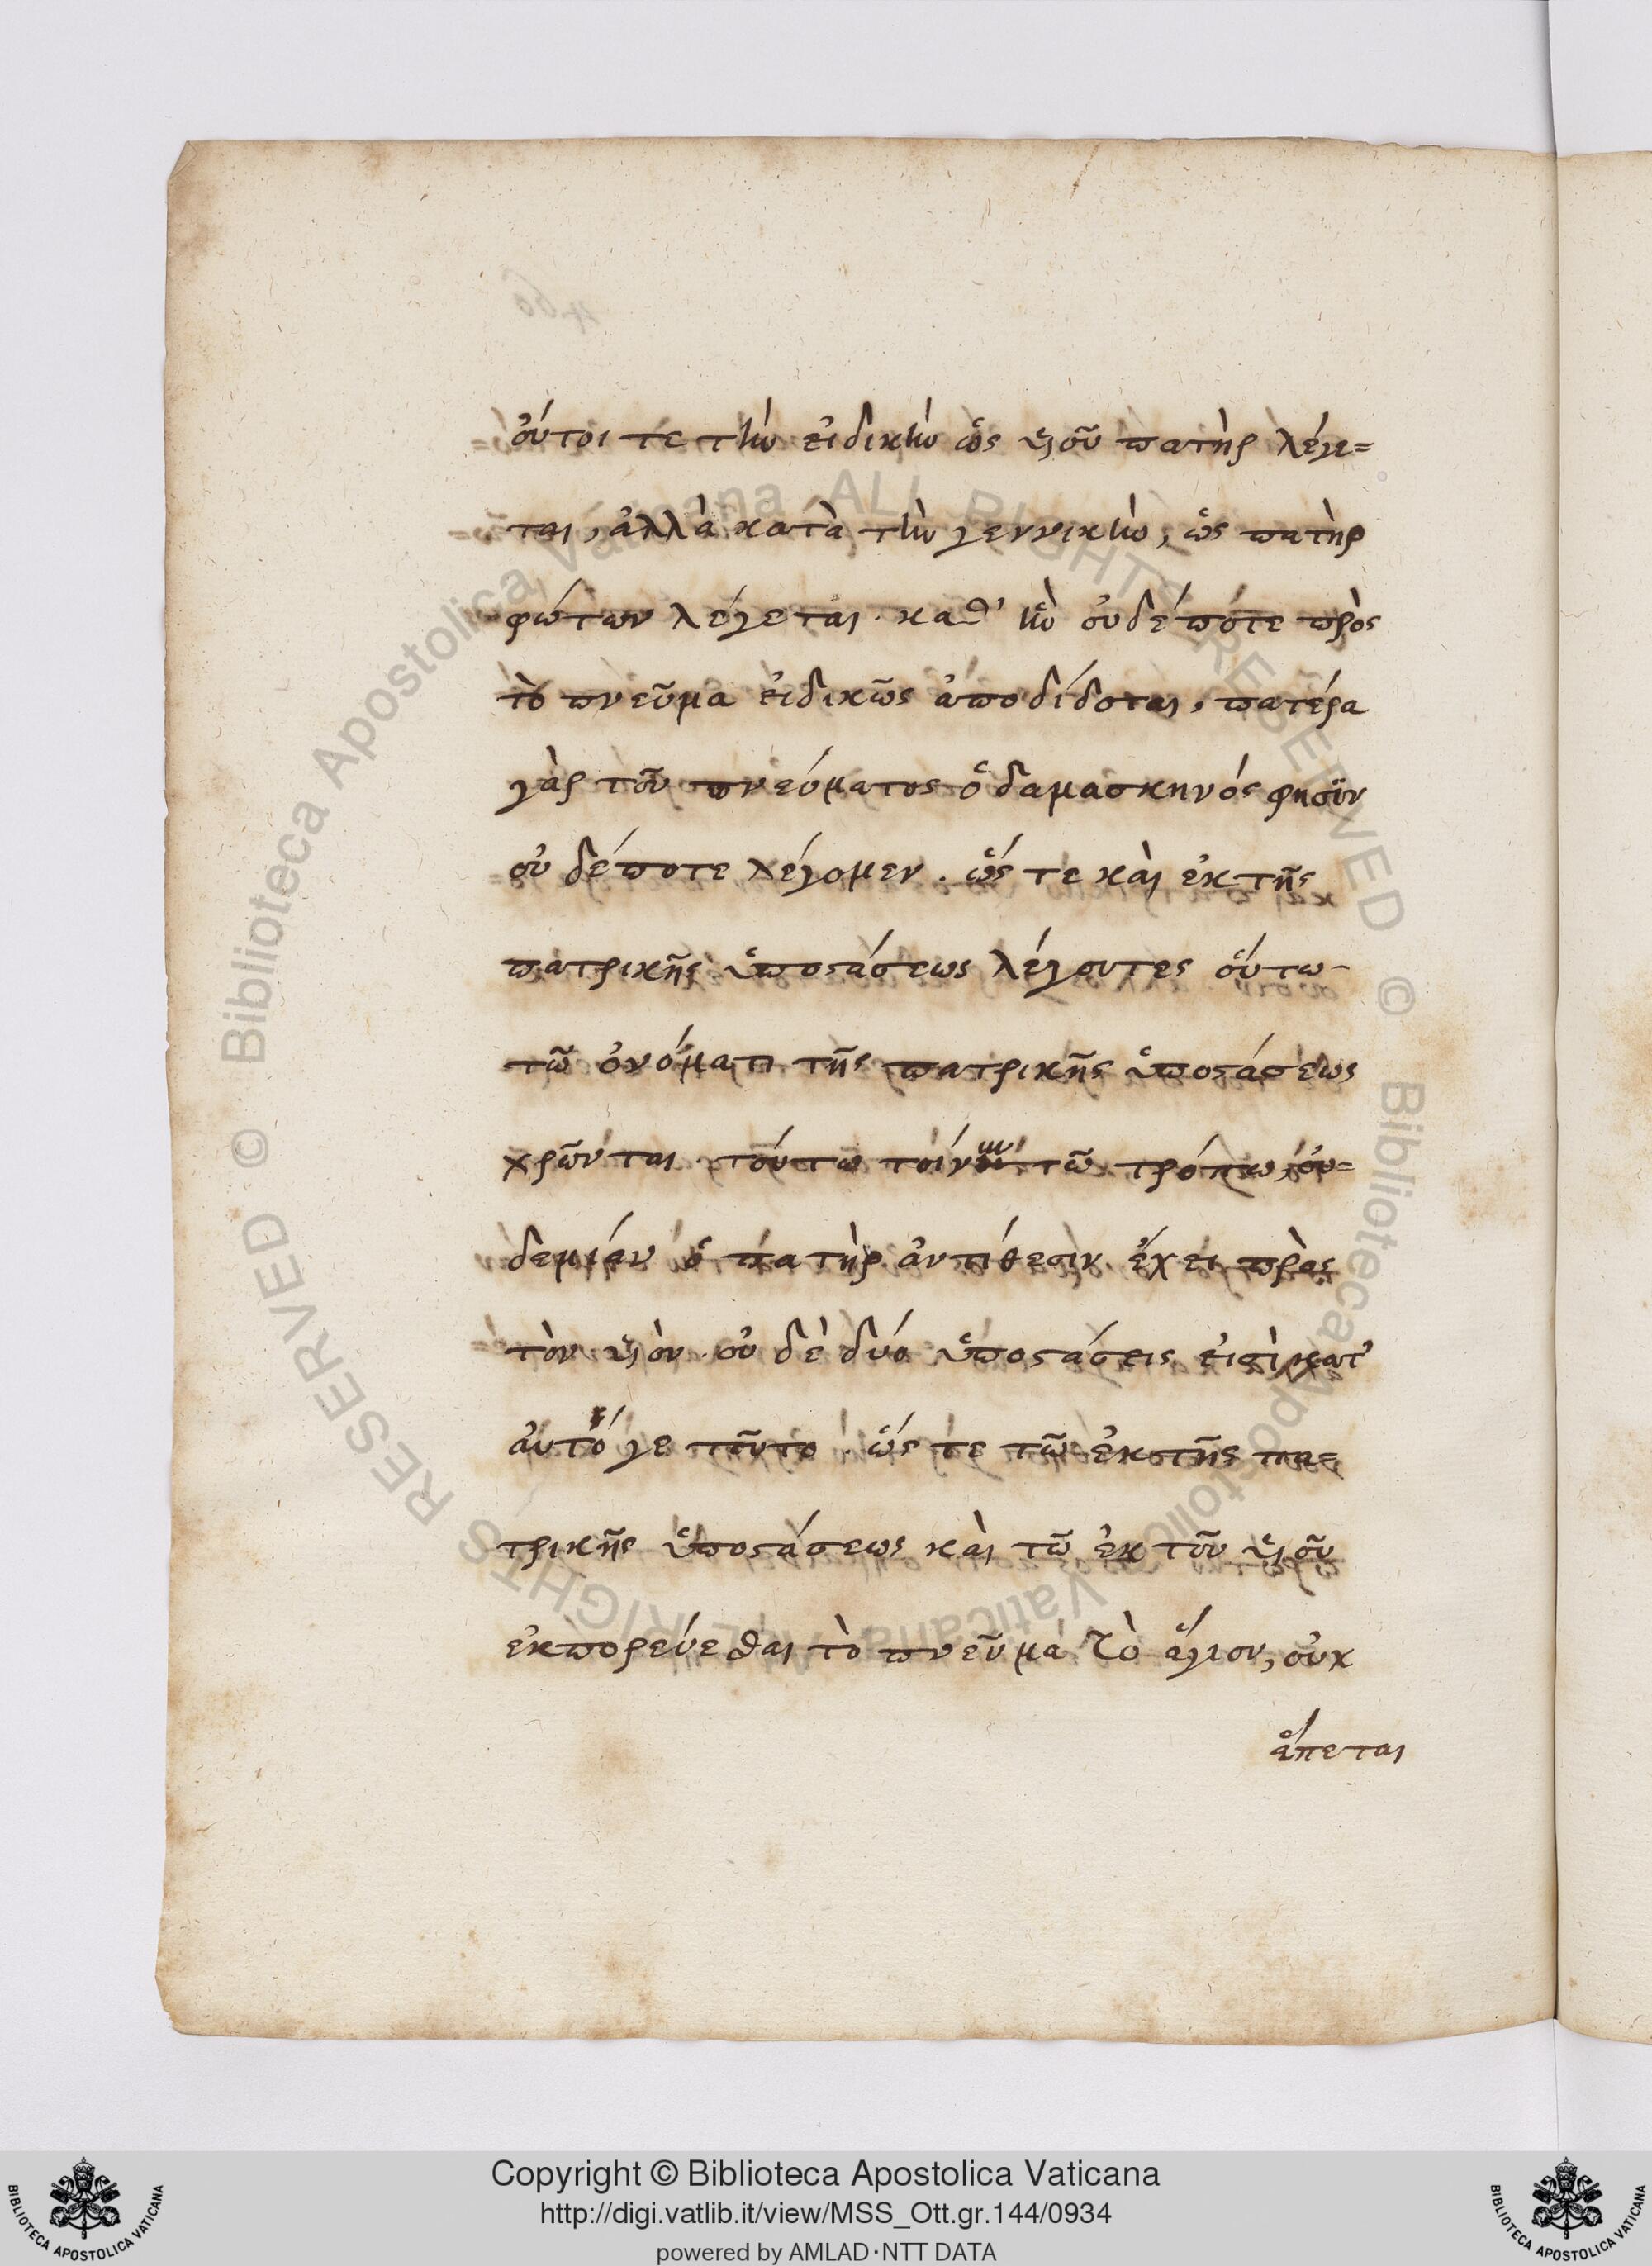 οὔτοι τε τὴν εἰδικὴν ὡς υἱοῦ πατὴρ λέγε=
ται, ἀλλὰ κατὰ τὴν γεννικὴν, ὡς πατὴρ
φώτων λέγεται. καθ' ἣν οὐδέποτε πρὸς
τὸ πνεῦμα εἰδικῶς ἀποδίδοται, πατέρα
γὰρ τοῦ πνεύματος ὁ δαμασκηνός φησϊν
οὐ δέποτε λέγομεν. ὥς τε καὶ ἐκ τῆς
πατρικῆς ὑποστάσεως λέγοντες οὕτω
τῶ ὀνόματι τῆς πατρικῆς ὑποστάσεως
χρῶνται. τούτω τοίνυν τῶ τρόπω, οὐ=
δεμιάν ὁ πατὴρ ἀντίθεσιν ἔχει πρὸς
τὸν υἱὸν. οὐ δὲ δύο ὑποστάσεις εἰσὶ κατ'
αὐτό γε τοῦτο. ὥς τε τῶ ἐκ τῆς πα=
τρικῆς ὑποστάσεως καὶ τῶ ἐκ τοῦ υἱοῦ
ἐκπορεύεσθαι τὸ πνεῦμα τὸ ἅγιον, οὐχ
ἕπεται
Copyright © Biblioteca Apostolica Vaticana
http://digi.vatlib.it/view/MSS_Ott.gr.144/0934
powered by AMLAD·NTT DATA
BIBLIOTECA APOSTOLICA VATICANA
BIBLIOTECA APOSTOLICA VATICANA
© Biblioteca Apostolica Vaticana ALL RIGHTS RESERVED © Biblioteca Apostolica Vaticana ALL RIGHTS RESERVED